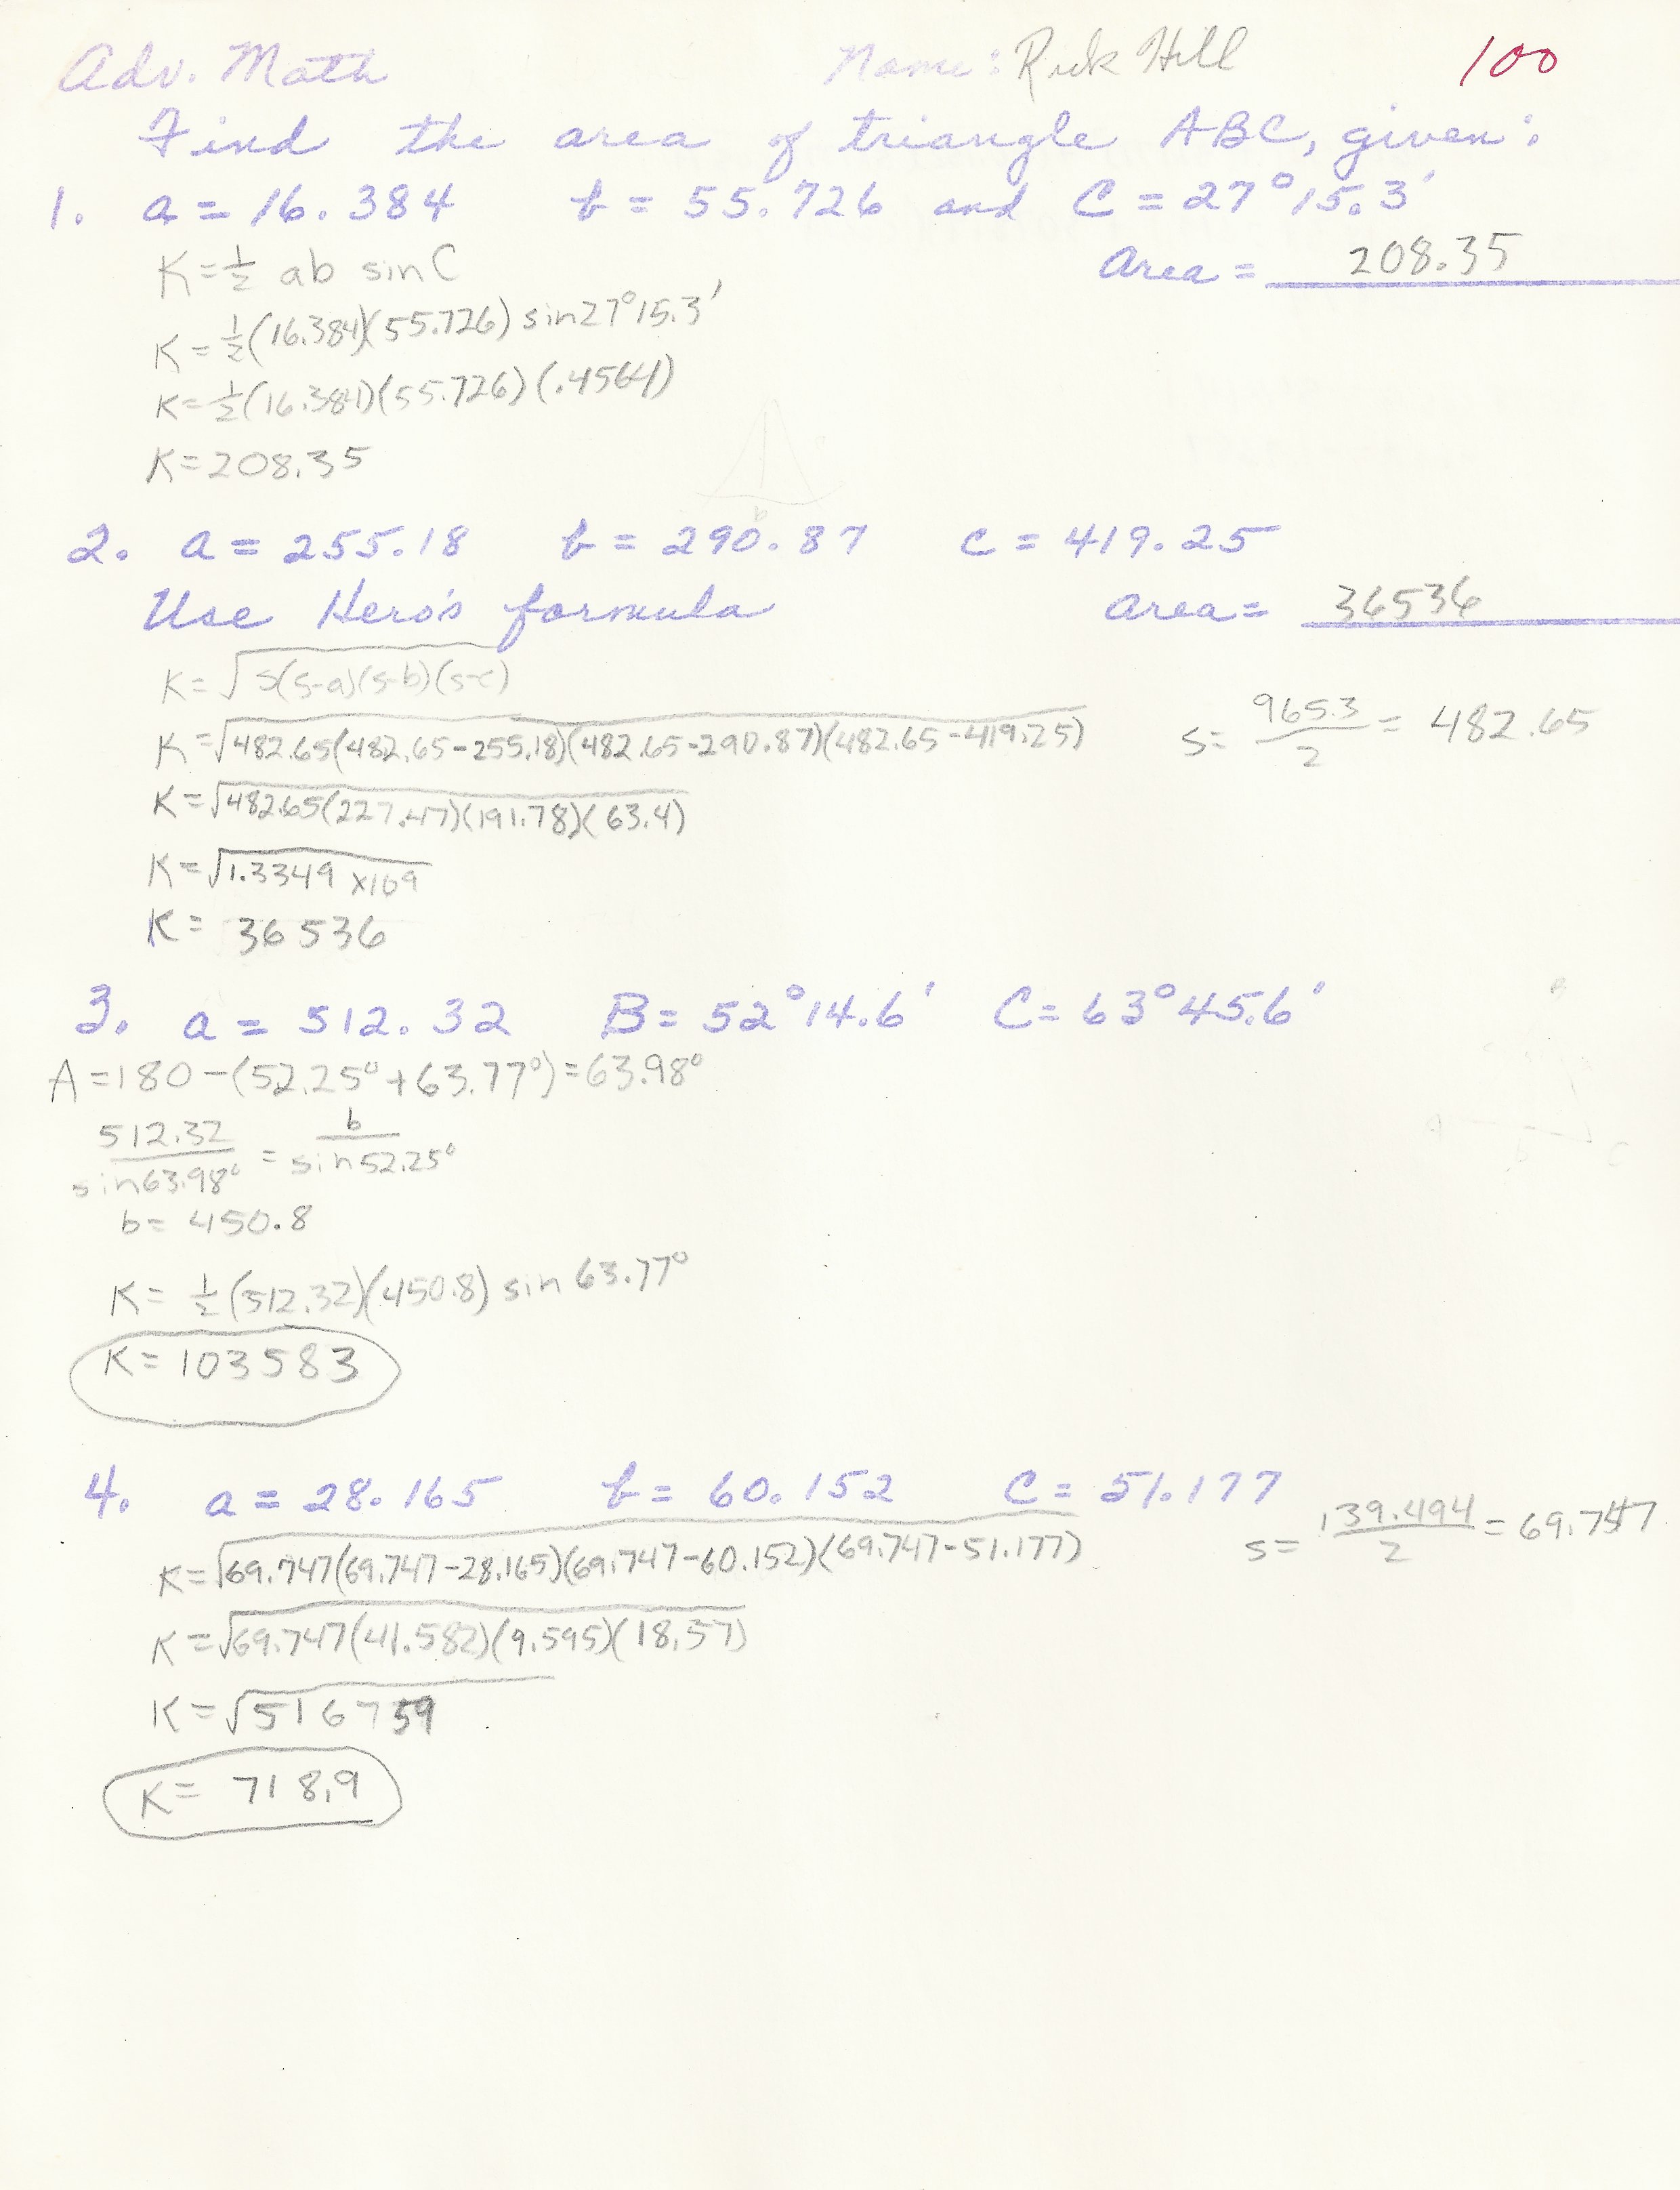 Adv. Math Name: Rick Hill 100
Find the area of triangle ABC, given:
1. a = 16.384 b = 55.726 and C = 27°15.3'
Area = 208.35
K = 1/2 ab sin C
K = 1/2 (16.384)(55.726) sin 27°15.3'
K = 1/2 (16.384)(55.726)(.4564)
K = 208.35
2. a = 255.18 b = 290.87 c = 419.25
Use Hero's formula area = 36536
K = √s(s-a)(s-b)(s-c)
K = √482.65(482.65-255.18)(482.65-290.87)(482.65-419.25) s = 965.3/2 = 482.65
K = √482.65(227.47)(191.78)(63.4)
K = √1.3349 x10⁹
K = 36536
3. a = 512.32 B = 52°14.6' C = 63°45.6'
A = 180 - (52.25° + 63.77°) = 63.98°
512.32/sin 63.98° = b/sin 52.25°
b = 450.8
K = 1/2 (512.32)(450.8) sin 63.77°
K = 103583
4. a = 28.165 b = 60.152 C = 51.177
K = √69.747(69.747-28.165)(69.747-60.152)(69.747-51.177) s = 139.494/2 = 69.747
K = √69.747(41.582)(9.595)(18.57)
K = √516759
K = 718.9